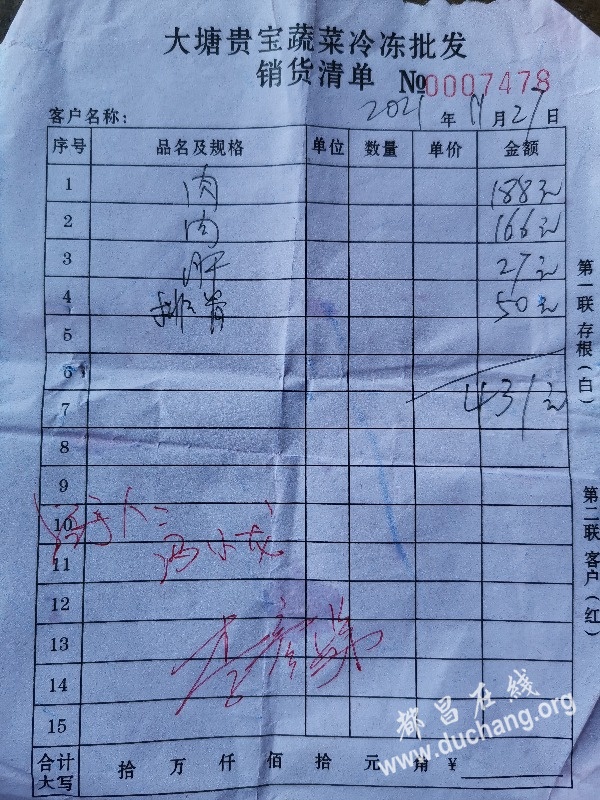 大塘贵宝蔬菜冷冻批发
销货清单 №0007478
客户名称： 2021 年 11 月 27 日
序号 品名及规格 单位 数量 单价 金额
1 肉 188元
2 肉 166元
3 肝 27元
4 排骨 50元
5
6
431元
7
8
9
10
冯小龙
11
12
13
14
15
合计大写 拾 万 仟 佰 拾 元 角 ¥
第一联 存根（白）
第二联 客户（红
都昌在线
www.duchang.org